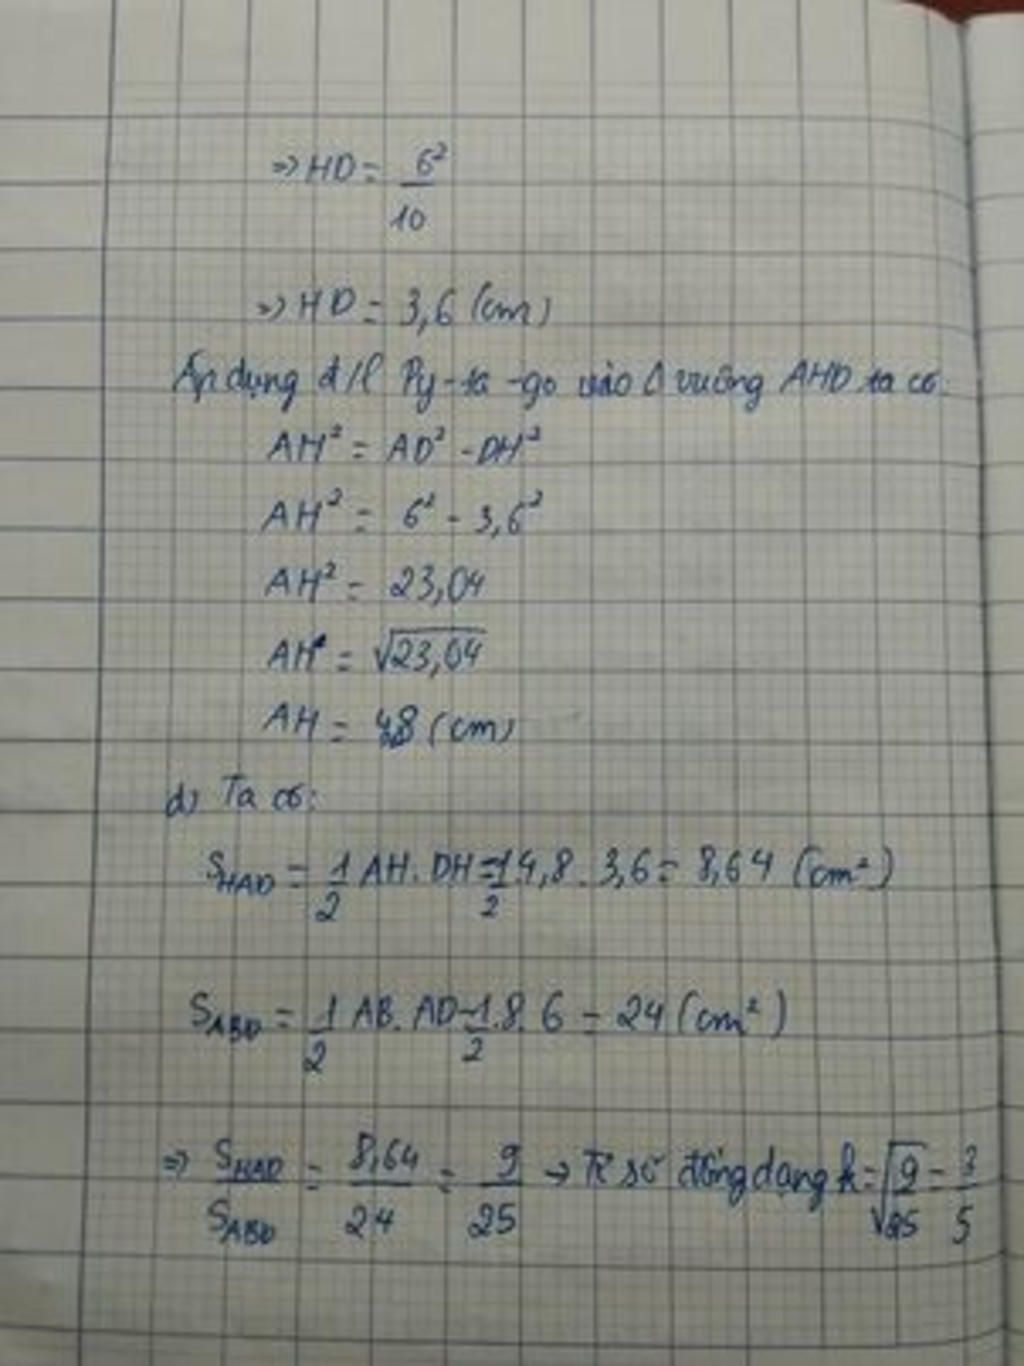 => HD = 6² / 10
=> HD = 3,6 (cm)
Áp dụng đ/l Py-ta-go vào Δ vuông AHD ta có:
AH² = AD² - DH²
AH² = 6² - 3,6²
AH² = 23,04
AH = √23,04
AH = 4,8 (cm)
d) Ta có:
S_HAD = 1/2 AH. DH = 1/2 . 4,8 . 3,6 = 8,64 (cm²)
S_ABD = 1/2 AB. AD = 1/2 . 8. 6 = 24 (cm²)
=> S_HAD / S_ABD = 8,64 / 24 = 9 / 25 → Tỉ số đồng dạng k = √(9/25) = 3/5